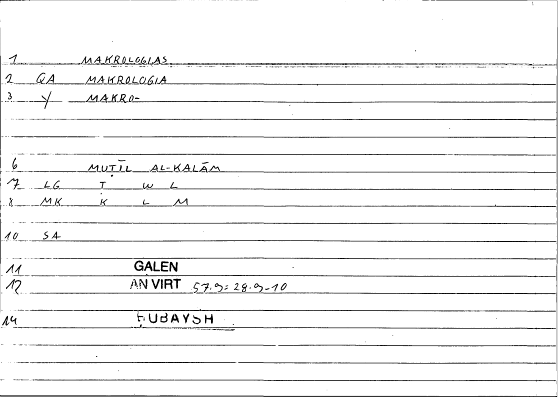 1 MAKROLOGIAS
2 GA MAKROLOGIA
3 Y MAKRO-
6 MUṬĪL AL-KALĀM
7 LG Ṭ W L
8 MK K L M
10 SA
11 GALEN
12 AN VIRT 57.9 = 28.9-10
14 ḤUBAYSH